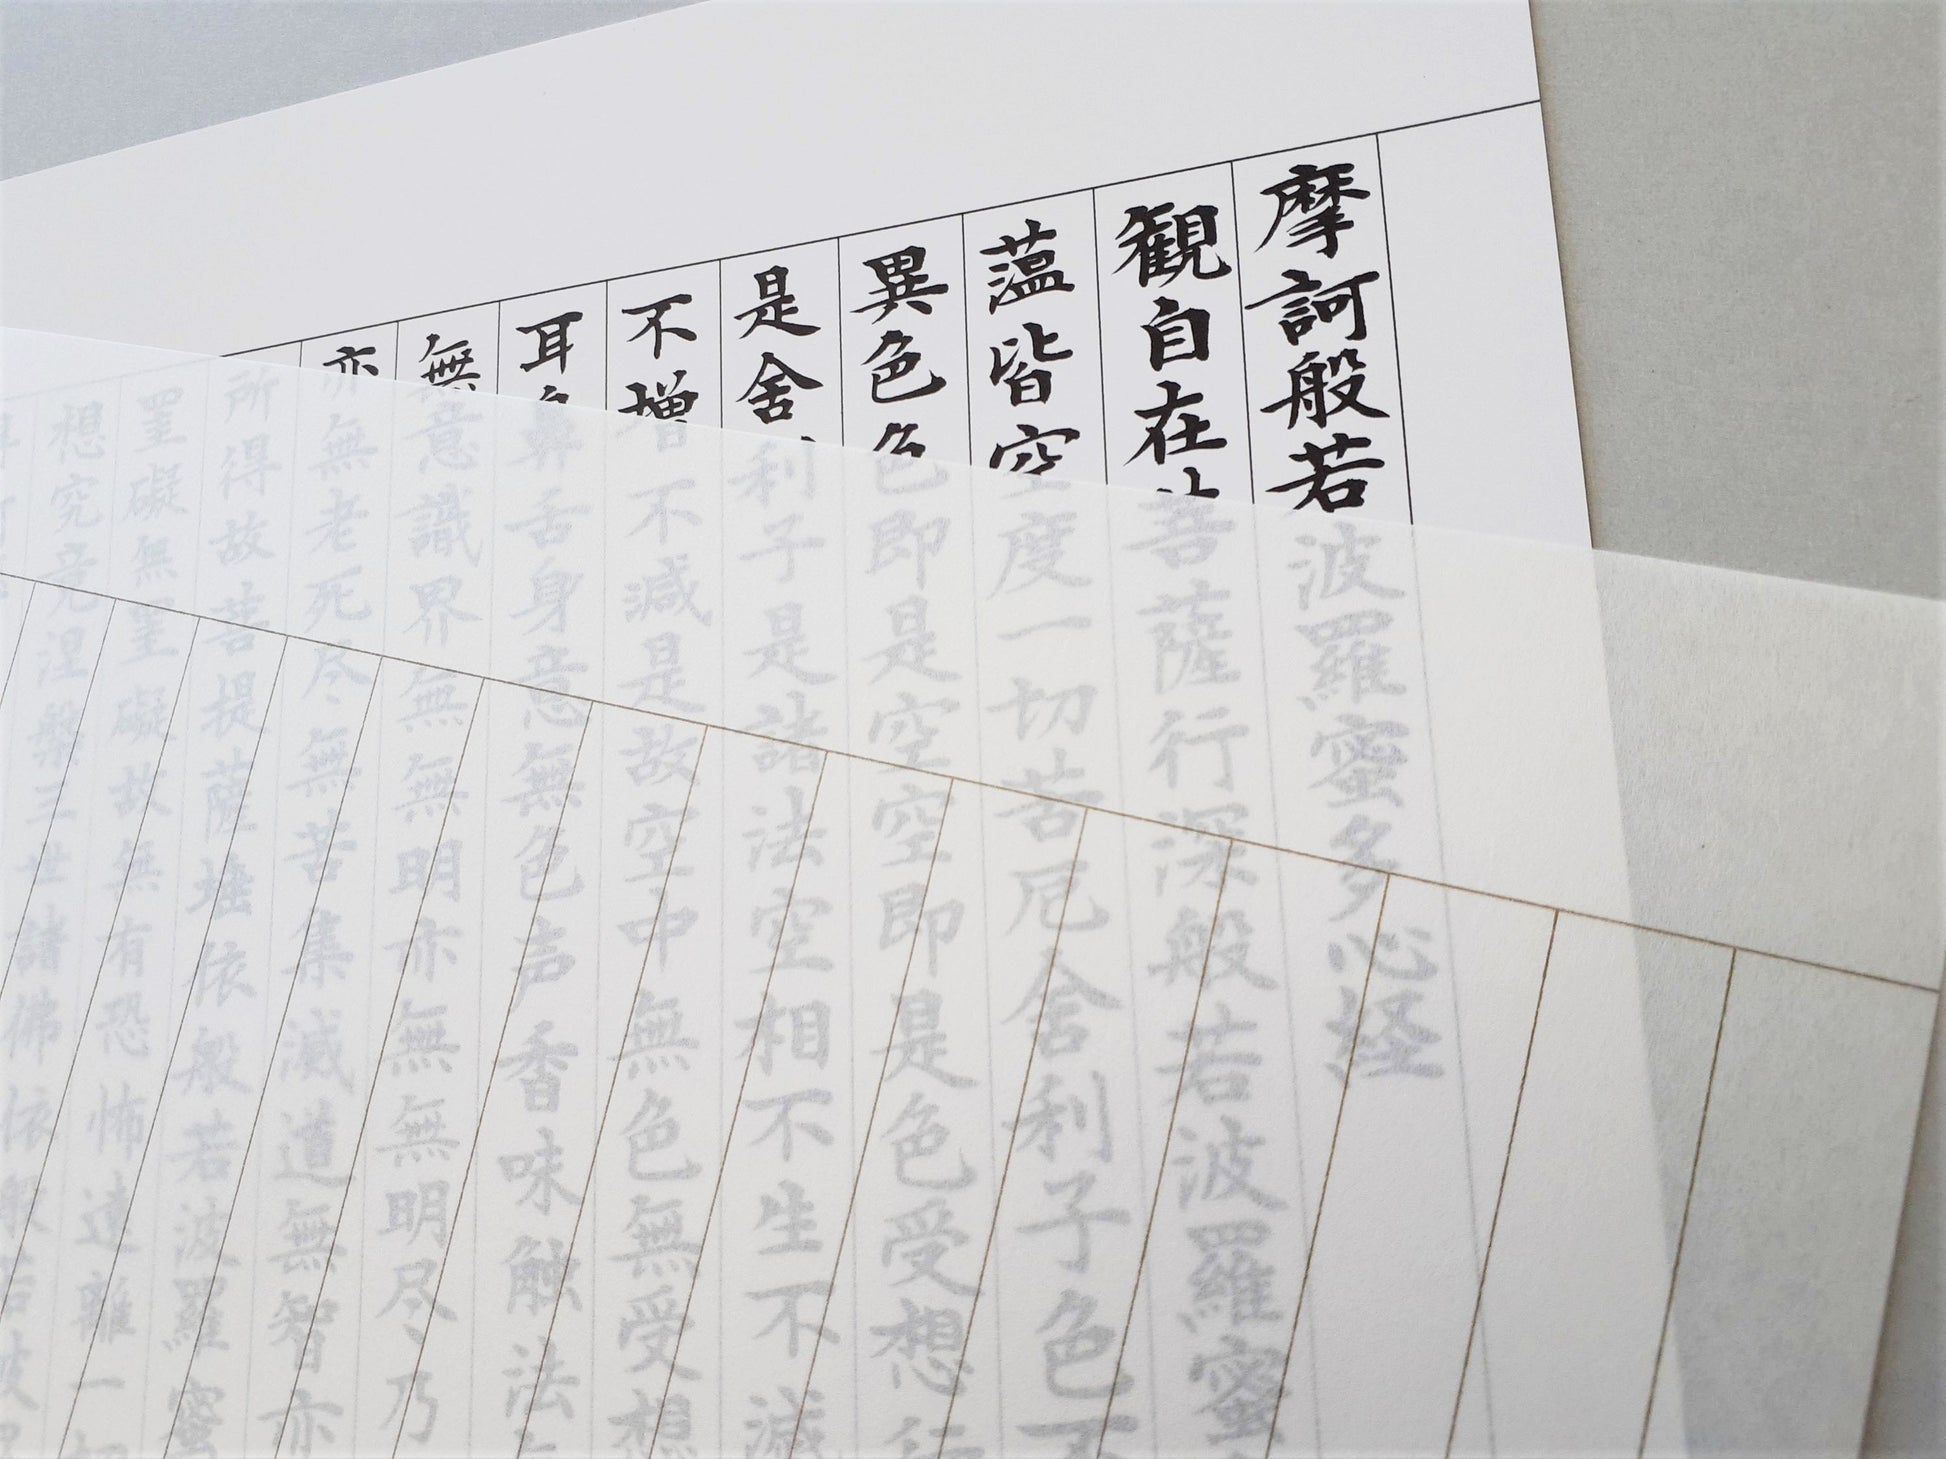 摩訶般若波羅蜜多心経
観自在菩薩行深般若波羅蜜
薀皆空度一切苦厄舎利子色不
異色色即是空空即是色受想行
是舎利子是諸法空相不生不滅
不増不減是故空中無色無受想
耳鼻舌身意無色声香味触法
無意識界無無明亦無無明尽乃
亦無老死尽無苦集滅道無智亦
所得故菩提薩埵依般若波羅蜜
罣礙無罣礙故無有恐怖遠離一切
想究竟涅槃三世諸佛依般若波